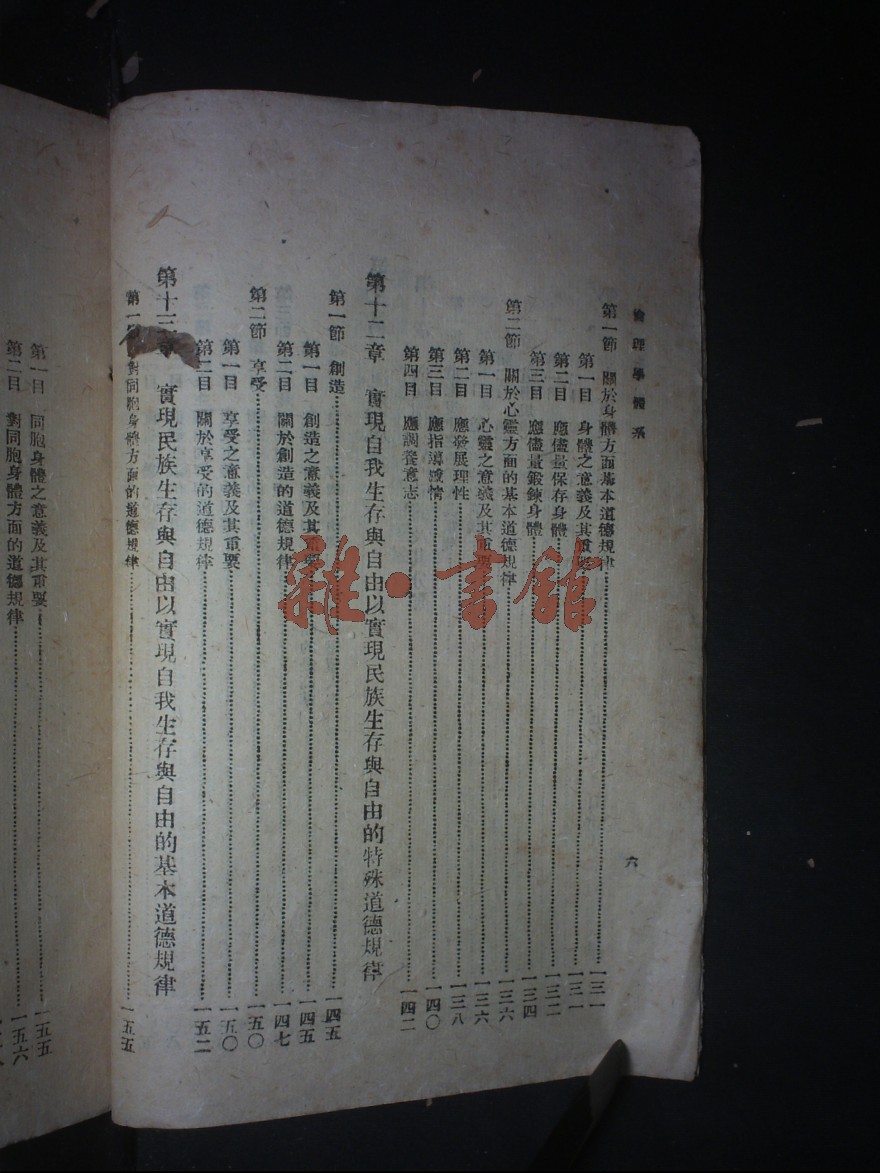 倫理學體系
六
第一節 關於身體方面基本道德規律……一三一
第一目 身體之意義及其重要……一三一
第二目 應儘量保存身體……一三二
第三目 應儘量鍛鍊身體……一三四
第二節 關於心靈方面的基本道德規律……一三六
第一目 心靈之意義及其重要……一三六
第二目 應發展理性……一三八
第三目 應指導感情……一四〇
第四目 應調養意志……一四二
第十二章 實現自我生存與自由以實現民族生存與自由的特殊道德規律
第一節 創造……一四五
第一目 創造之意義及其重要……一四五
第二目 關於創造的道德規律……一四七
第二節 享受……一五〇
第一目 享受之意義及其重要……一五〇
第二目 關於享受的道德規律……一五二
第十三章 實現民族生存與自由以實現自我生存與自由的基本道德規律
第一 對同胞身體方面的道德規律……一五五
第一目 同胞身體之意義及其重要……一五五
第二目 對同胞身體方面的道德規律……一五六
雜·書館